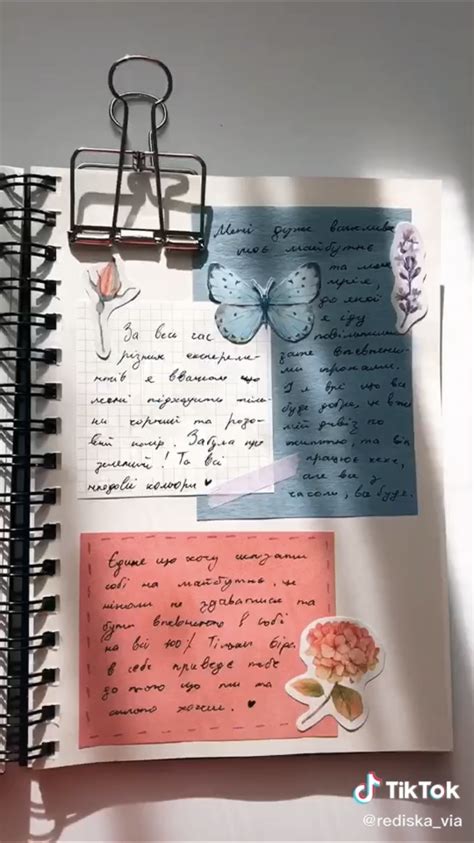 Мені дуже важливе
моє майбутнє
та моя
мрія
до якої
я іду
повільними
зате впевнени-
ми кроками.
І я вірю що все
буде добре, це вже
мій девіз по
життю, та він
працює хехе,
але всі з
часом, все буде.
За весь час
різних експеремен-
нтів я вважаю що
мені підходить тіль-
ки чорний та розо-
вий колір. Забула про
зелений! Та всі
кольори ♥
Єдине що хочу сказати
собі на майбутнє, це
ніколи не здаватися та
бути впевненою в собі
на всі 100% Тільки віра
в себе приведе тебе
до того що ти так
сильно хочеш. ♥
TikTok
@rediska_via